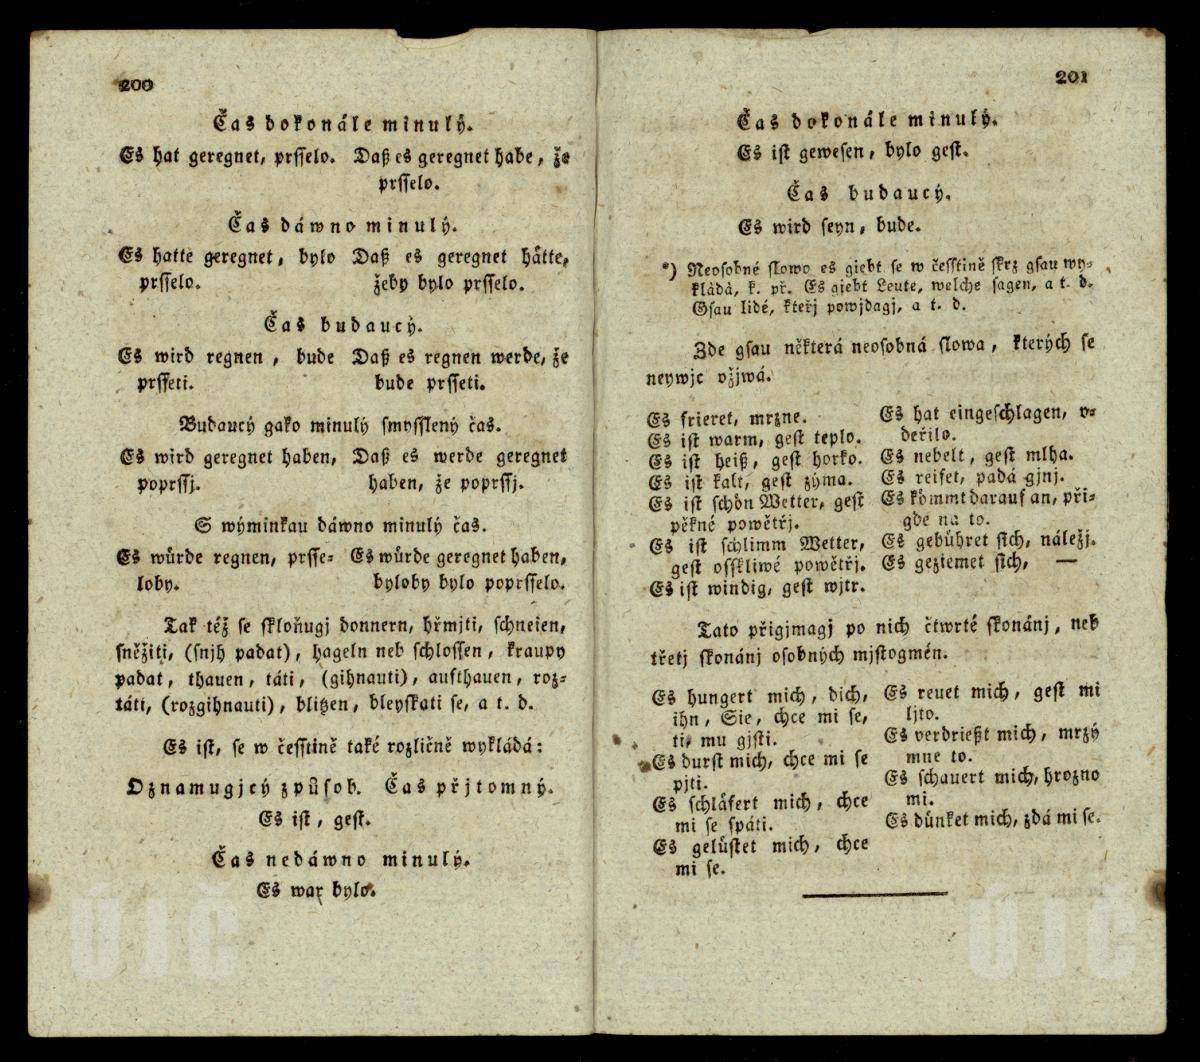 200
Čas dokonále minulý.
Es hat geregnet, prsselo. Daß es geregnet habe, že
prsselo.
Čas dáwno minulý.
Es hatte geregnet, bylo Daß es geregnet hätte,
prsselo. žeby bylo prsselo.
Čas budaucý.
Es wird regnen, bude Daß es regnen werde, že
prsseti. bude prsseti.
Budaucý gako minulý smysslený čas.
Es wird geregnet haben, Daß es werde geregnet
poprssj. haben, že poprssj.
S wýminkau dáwno minulý čas.
Es würde regnen, prsse- Es würde geregnet haben,
loby. byloby bylo poprsselo.
Tak též se skloňugj donnern, hřmjti, schneien,
sněžiti, (snjh padat), hageln neb schlossen, kraupy
padat, thauen, táti, (gihnauti), aufthauen, roz-
táti, (rozgihnauti), blitzen, bleyskati se, a t. d.
Es ist, se w čessťině také rozličně wykládá:
Oznamugjcý způsob. Čas přjtomný.
Es ist, gest.
Čas nedáwno minulý.
Es war bylo.
201
Čas dokonále minulý.
Es ist gewesen, bylo gest.
Čas budaucý.
Es wird seyn, bude.
*) Neosobné slowo es giebt se w čessťině skrz gsau wy-
kládá, k. př. Es giebt Leute, welche sagen, a t. d.
Gsau lidé, kteřj powjdagj, a t. d.
Zde gsau některá neosobná slowa, kterých se
neywjc vžjwá.
Es frieret, mrzne.
Es ist warm, gest teplo.
Es ist heiß, gest horko.
Es ist kalt, gest zýma.
Es ist schön Wetter, gest
pěkné powětřj.
Es ist schlimm Wetter,
gest osskliwé powětřj.
Es ist windig, gest wjtr.
Es hat eingeschlagen, v-
deřilo.
Es nebelt, gest mlha.
Es reifet, padá gjnj.
Es kömmt darauf an, při-
gde na to.
Es gebühret sich, náležj.
Es geziemet sich, —
Tato přigjmagj po nich čtwrté skonánj, neb
třetj skonánj osobných mjstogmén.
Es hungert mich, dich,
ihn, Sie, chce mi se,
ti, mu gjsti.
Es durst mich, chce mi se
pjti.
Es schläfert mich, chce
mi se spáti.
Es gelüstet mich, chce
mi se.
Es reuet mich, gest mi
ljto.
Es verdrießt mich, mrzý
mne to.
Es schauert mich, hrozno
mi.
Es dünket mich, zdá mi se.
ÚJČ
ÚJČ